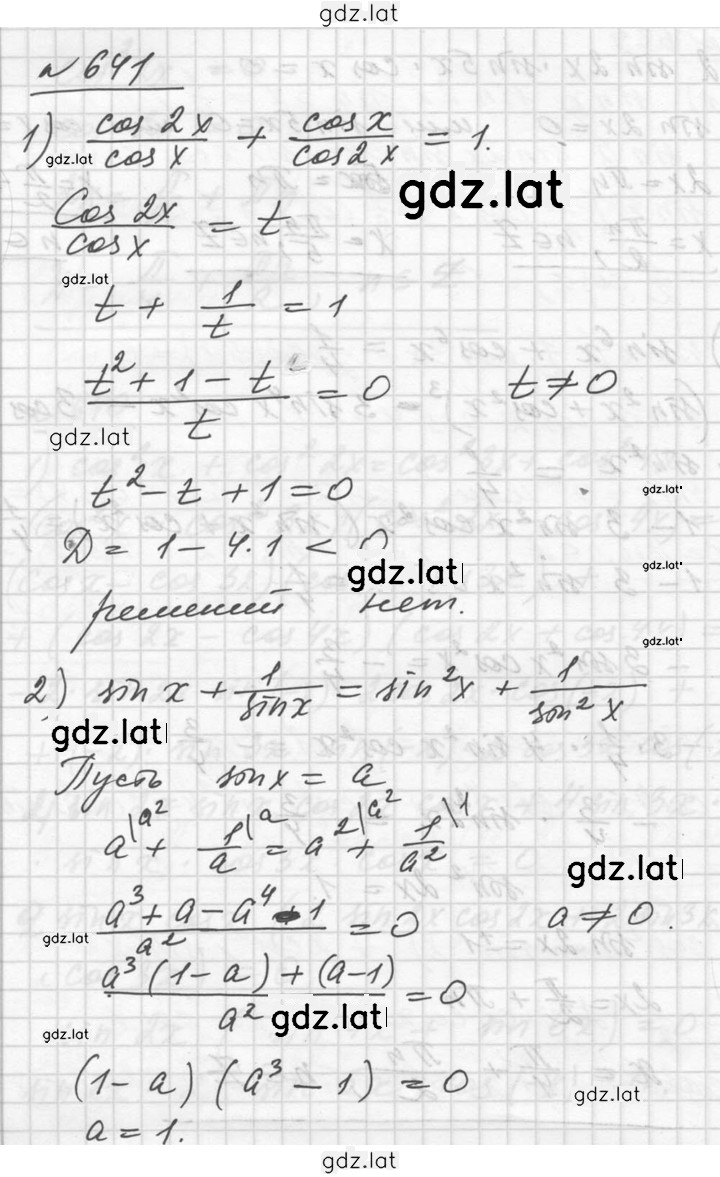 gdz.lat
№ 641
1) cos 2x / cos x + cos x / cos 2x = 1.
gdz.lat
gdz.lat
Cos 2x / cos x = t
gdz.lat
t + 1/t = 1
(t² + 1 - t) / t = 0   t ≠ 0
gdz.lat
t² - t + 1 = 0
gdz.lat
Д = 1 - 4·1 < 0
gdz.lat
gdz.lat
решений нет.
gdz.lat
2) sin x + 1/sin x = sin²x + 1/sin² x
gdz.lat
Пусть sin x = a
a\a² + 1/a\a = a²\a² + 1/a²\1
gdz.lat
(a³ + a - a⁴ - 1) / a² = 0   a ≠ 0.
gdz.lat
(a³(1 - a) + (a - 1)) / a² = 0
gdz.lat
gdz.lat
(1 - a) (a³ - 1) = 0
gdz.lat
a = 1.
gdz.lat